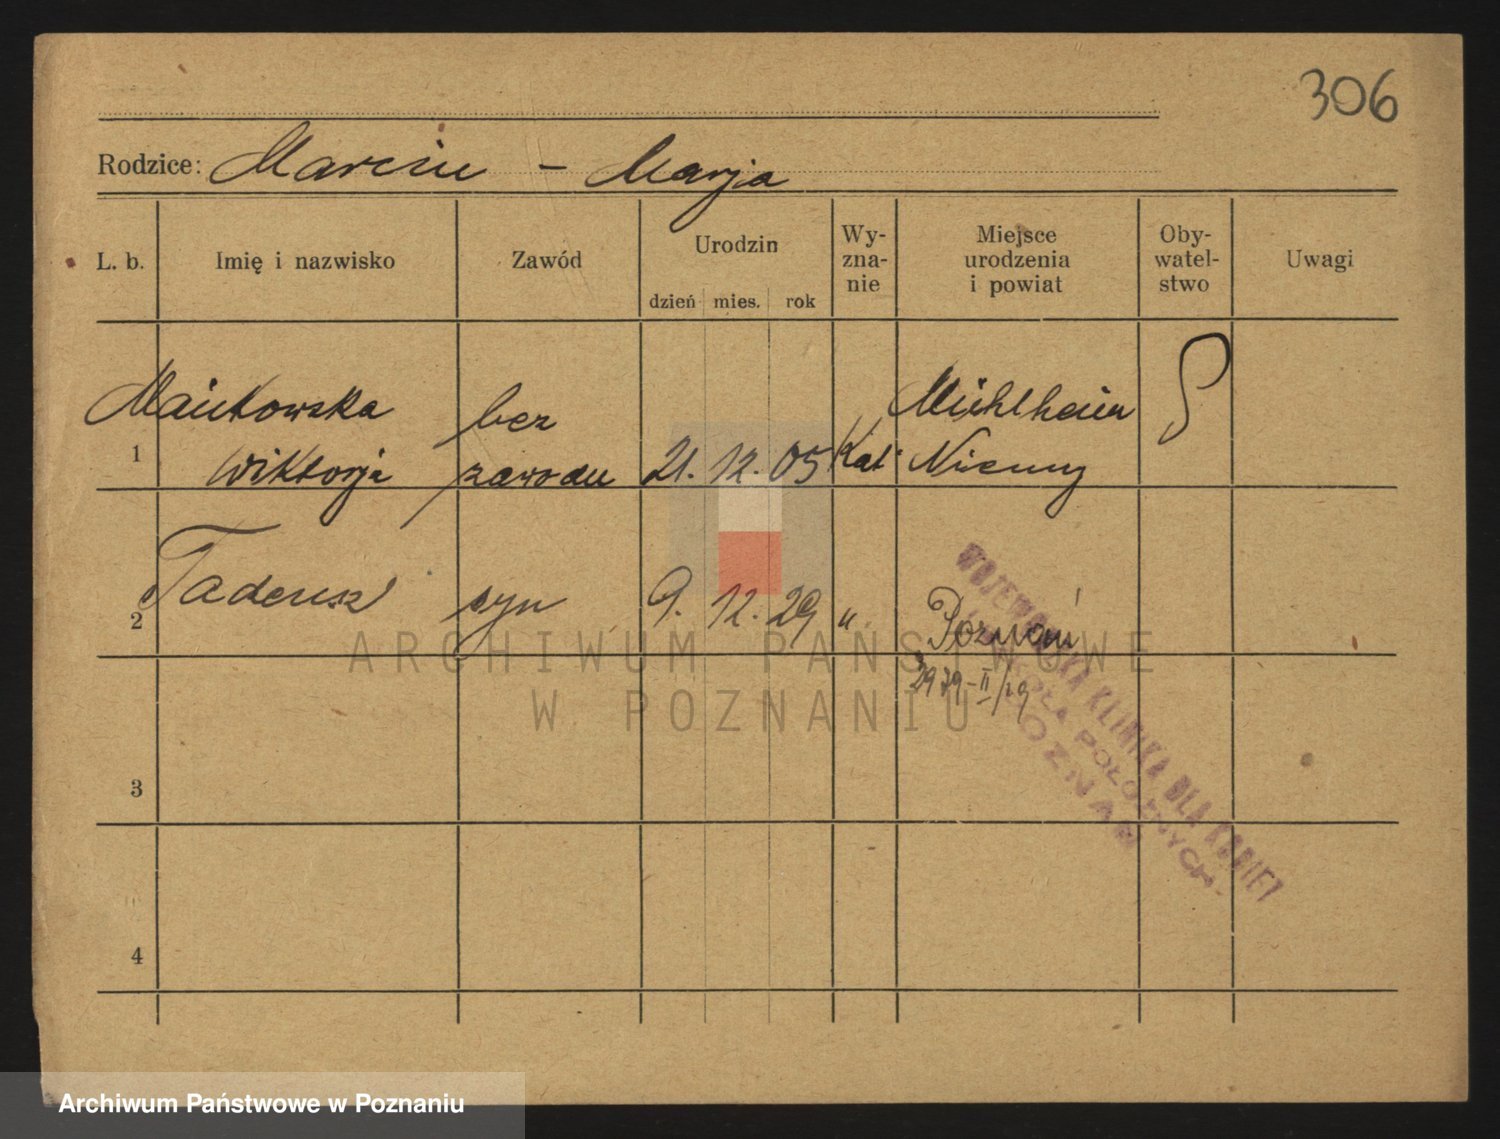 306
Rodzice: Marcin - Marja
L. b. Imię i nazwisko Zawód Urodzin dzień mies. rok Wyznanie Miejsce urodzenia i powiat Obywatelstwo Uwagi
Mańkowska bez Mühlheim P
1 Wiktorja zawodu 21. 12. 05 Kat. Niemcy
2 Tadeusz syn 9. 12. 29 " Poznań
WOJEWÓDZKA KLINIKA DLA KOBIET
POŁOŻNYCH
POZNAŃ
3
4
ARCHIWUM PAŃSTWOWE
W POZNANIU
Archiwum Państwowe w Poznaniu